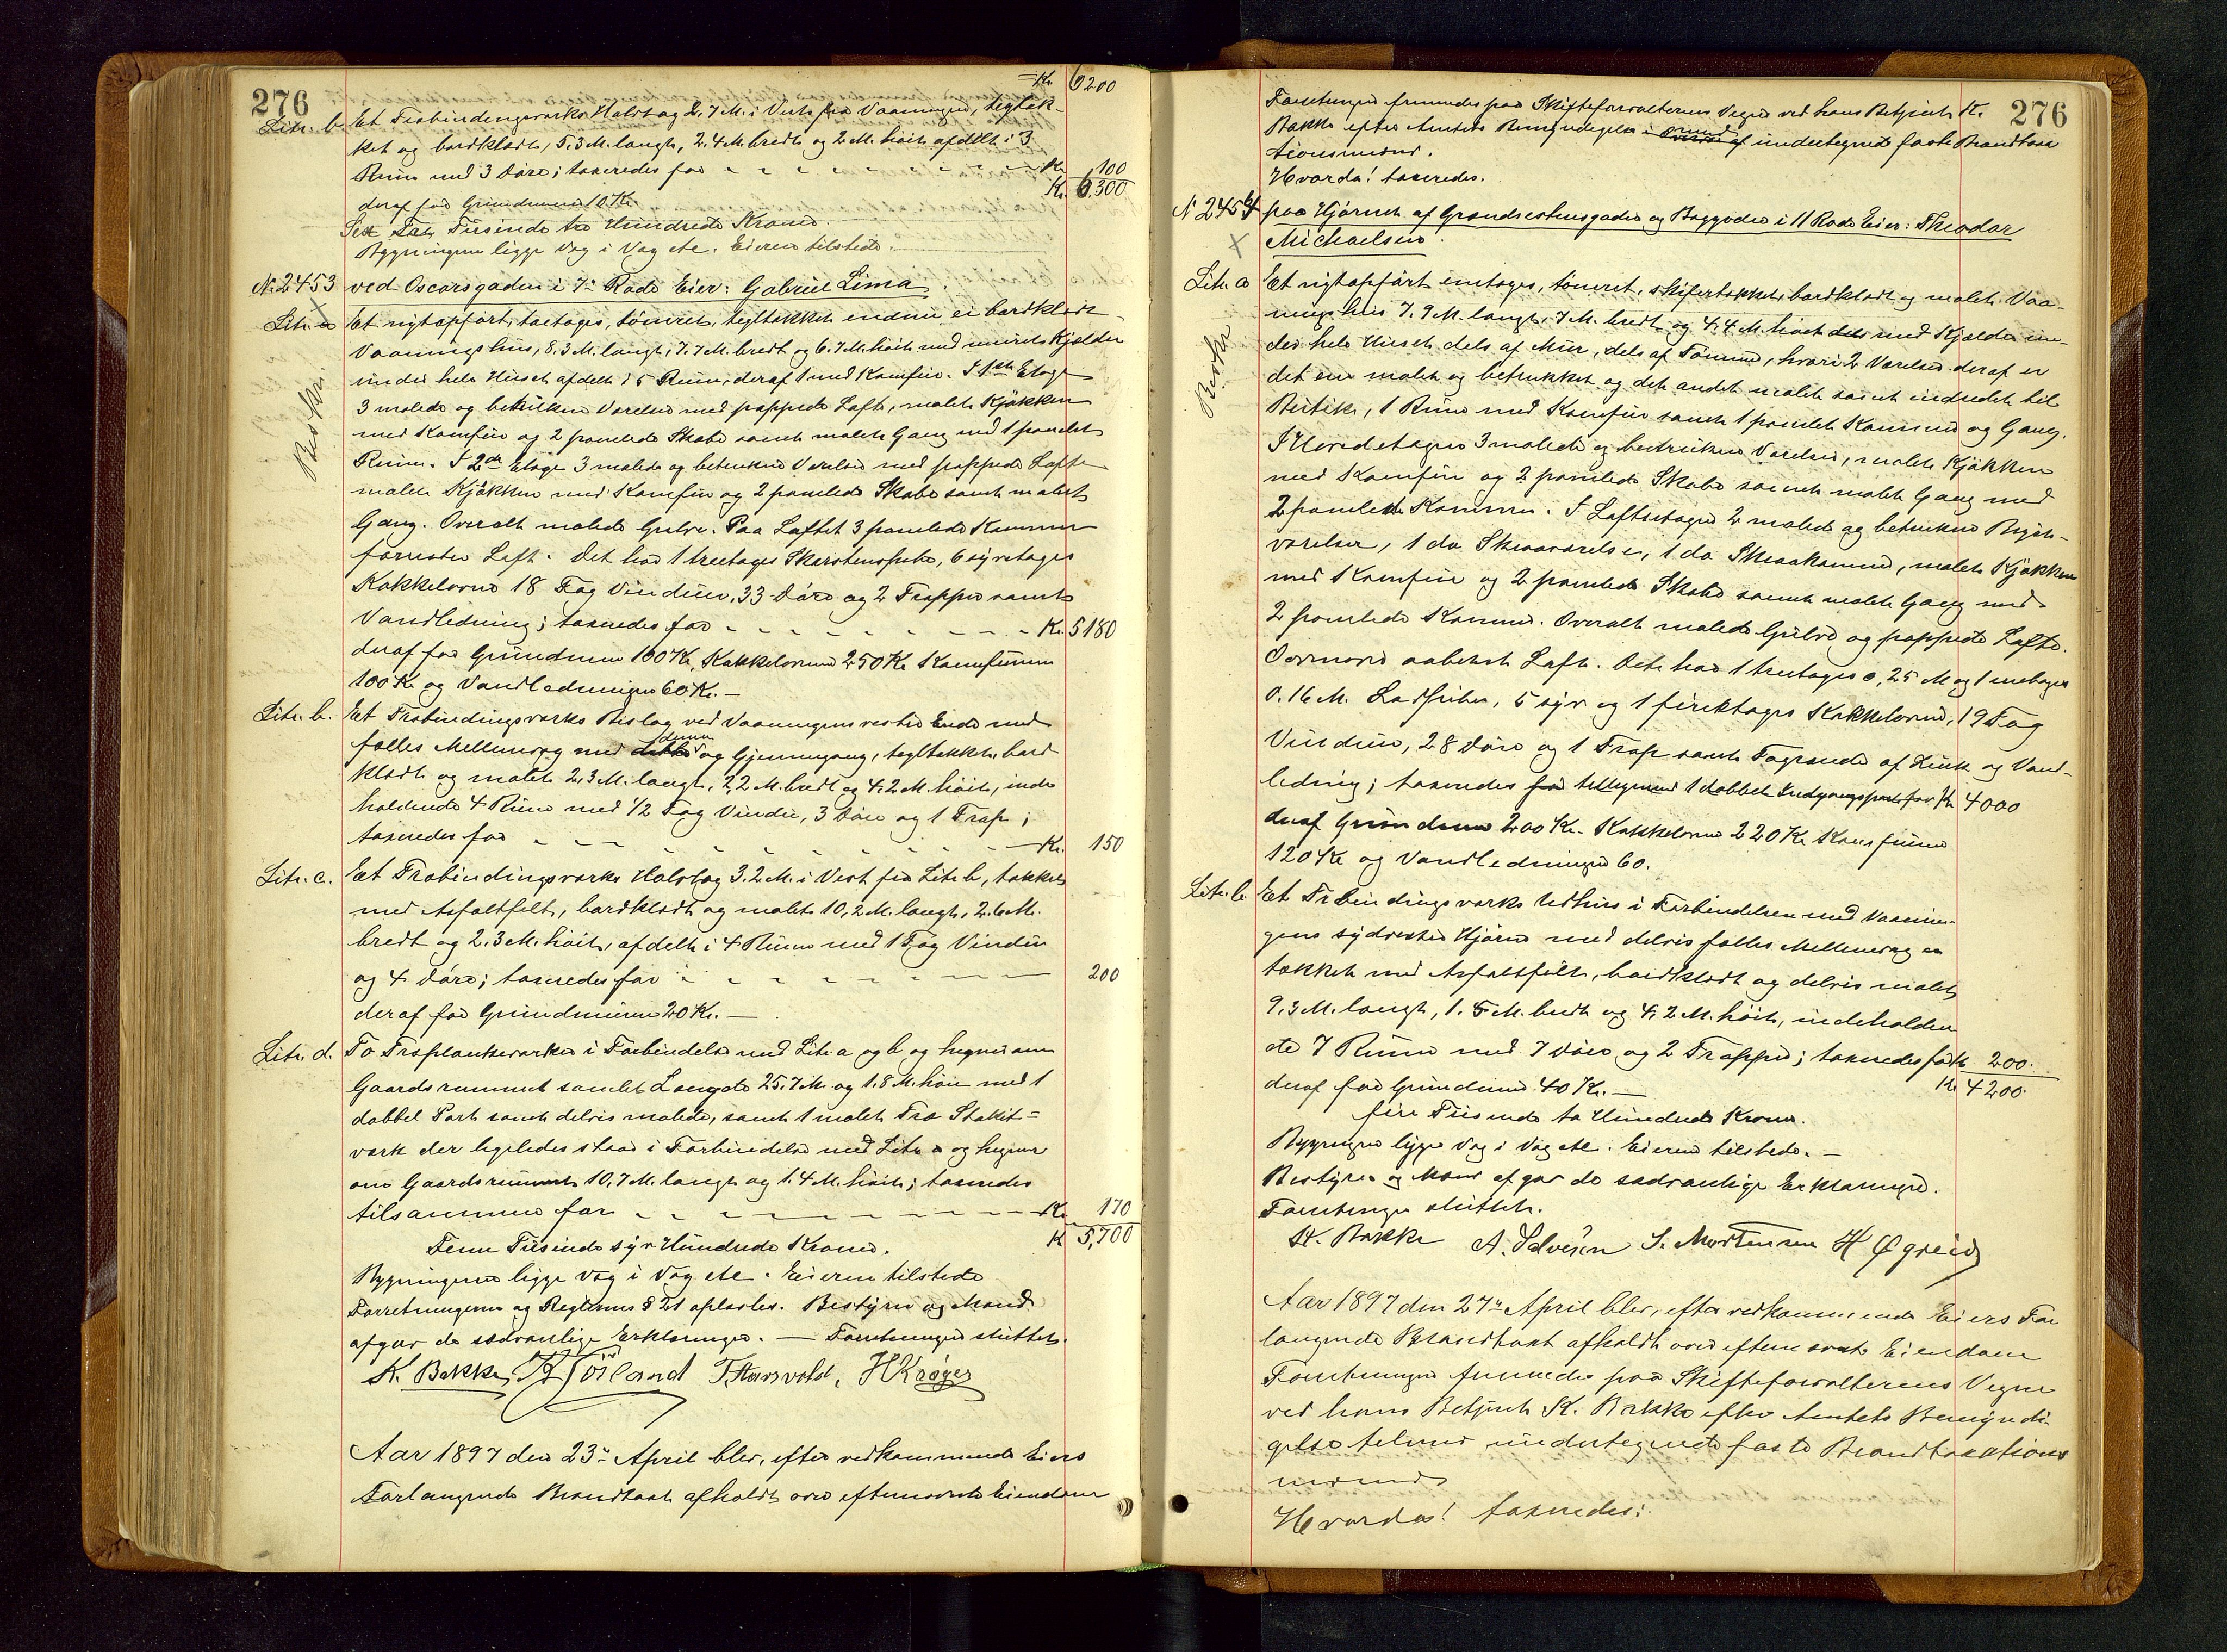 = Kr. 6200
276
Litr. b. Et Træbindingsværks Halvtag 2,7 M. i Vest fra Vaaningen, tegltæk-
ket og bordklædt, 5.3 M. langt, 2.4 M. bredt og 2 M. höit afdelt i 3
Rum med 3 Döre; taxeredes for - - - Kr. 100
Kr. 6300
deraf for Grundmuren 10 Kr.
Sex Tusinde tre Hundrede Kroner.
Bygningerne ligge Væg i Væg etc. Eieren tilstede.
No 2453 ved Oscarsgaden i 7de Rode Eier: Gabriel Lima.
Litr. a Et nyt opfört, toetages, tömret, tegltækket endnu ei bordklædt
Vaaningshus, 8.3 M. langt, 7.7 M. bredt og 6.7 M. höit med muret Kjælder
under hele Huset afdelt i 5 Rum, deraf 1 med Komfur. I 1ste Etage
3 malede og betrukne Værelser med pappede Lofte, malet Kjökken
med Komfur og 2 panelede Skabe samt malet Gang med 1 panelet
Rum. I 2den Etage 3 malede og betrukne Værelser med pappede Lofte
malet Kjökken med Komfur og 2 panelede Skabe samt malet
Gang. Overalt malede Gulve. Paa Loftet 3 panelede Kammer
forresten Loft. Det har 1 treetages Skorstenspibe, 6 syvetages
Kakkelovne 18 Fag Vinduer, 33 Döre og 2 Trapper samt
Vandledning; taxeredes for - - - Kr. 5180
deraf for Grundmuren 100 Kr., Kakkelovnene 250 Kr. Komfurene
100 Kr. og Vandledningen 60 Kr. -
Litr. b. Et Træbindingsværks Bislag ved Vaaningens vestre Ende med
fælles Mellemvæg med denne og Gjennemgang, tegltækket, bord-
klædt og malet 2,3 M. langt, 2,2 M. bredt og 4,2 M. höit, inde
holdende 4 Rum med 1/2 Fag Vindu, 3 Döre og 1 Trap;
taxeredes for - - - Kr. 150
Litr. c. Et Træbindingsværks Halvtag 3.2 M. i Vest fra Litr. b, tækket
med Asfaltfelt, bordklædt og malet 10,2 M. langt, 2.6 M.
bredt og 2.3 M. höit, afdelt i 4 Rum med 1 Fag Vindu
og 4 Döre; taxeredes for - - - 200
deraf for Grundmuren 20 Kr. -
Litr. d. To Træplankeværker i Forbindelse med Litr. a og b og hegner om
Gaardsrummet samlet Længde 25.7 M. og 1.8 M. höie med 1
dobbel Port samt delvis malede, samt 1 malet Træ Stakit=
værk der ligeledes staar i Forbindelse med Litr. a og hegner
om Gaardsrummet 10,7 M. langt og 1.4 M. höit; taxeredes
tilsammen for - - - Kr. 170
K 5,700
Fem Tusinde syv Hundrede Kroner.
Bygningerne ligge Væg i Væg etc. Eieren tilstede
Forretningerne og Reglernes § 21 oplæstes. Bestyrer og Mænd
afgav de sædvanlige Erklæringer. - Forretningen sluttet.
K. Bakke, H Kröger
Aar 1897 den 23de April blev, efter vedkommende Eiers
Forlangende Brandtaxt afholdt over eftennævnte Eiendom
276
Forretningen fremmedes paa Skifteforvalterens Vegne ved hans Betjent K.
Bakke efter Amtets Bemyndigelse med undertegnede faste Brandtaxa
tionsmænd.
Hvorda! taxeredes.
No 2454 paa Hjörnet af Grændsestensgaden og Baggaden i 11 Rode Eier: Theodor
Michaelsen.
Litr. a Et nyt opfört enetages, tömret, skifertækket, bordklædt og malet Vaa-
ningshus 7.9 M. langt, 7 M. bredt og 4,4 M. höit med Kjælder un-
der hele Huset dels af Mur, dels af Tömmer, hvori 2 Værelser deraf er
det ene malet og betrukket og det andet malet samt indredet til
Butik, 1 Rum med Komfur samt 1 panelet Kammer og Gang.
I Hovedetagen 3 malede og betrukne Værelser, malet Kjökken
med Komfur og 2 panelede Skabe samt malet Gang med
2 panelede Kammer. I Loftsetagen 2 malede og betrukne Kvist-
værelser, 1 do Skraaværelse, 1 do Skraakammer, malet Kjökken
med Komfur og 2 panelede Skabe samt malet Gang med
2 panelede Kammer. Overalt malede Gulve og pappede Lofte.
Ovenover aabent Loft. Det har 1 treetages 0,25 M og 1 enetages
0.16 M. Lodpiber, 5 syv og 1 fireetages Kakkelovne, 19 Fag
Vinduer, 28 Döre og 1 Trap samt Tagrender af Zink og Vand-
ledning; taxeredes tilligemed 1 dobbelt Indgangsport for Kr. 4000
deraf Grundmuren 200 Kr. Kakkelovne 220 Kr. Komfurene
120 Kr. og Vandledningen 60.
Litr. b. Et Træbindingsværks Udhus i Forbindelsen med Vaanin-
gens sydvestre Hjörne med delvis fælles Mellemvæg er
tækket med Asfaltfilt, bordklædt og delvis malet
9,3 M. langt, 1.5 M. bredt og 4,2 M. höit, indeholden
de 7 Rum med 7 Döre og 2 Trapper; taxeredes for Kr. 200.
deraf for Grundmur 40 Kr. - Kr. 4200.
fire Tusinde to Hundrede Kroner.
Bygningerne ligge Væg i Væg etc. Eieren tilstede. -
Bestyrer og Mænd afgav de sædvanlige Erklæringer.
Forretningen sluttet.
K. Bakke A. Salvesen S. Mortensen H Øgreid
Aar 1897 den 27de April blev, efter vedkommende Eiers For
langende Brandtaxt afholdt over eftennævnte Eiendom
Forretningen fremmedes paa Skifteforvalterens Vegne
ved hans Betjent K. Bakke efter Amtets Bemyndi-
gelse undertegnede faste Brandtaxations
mænd
Hvorda! taxeredes: